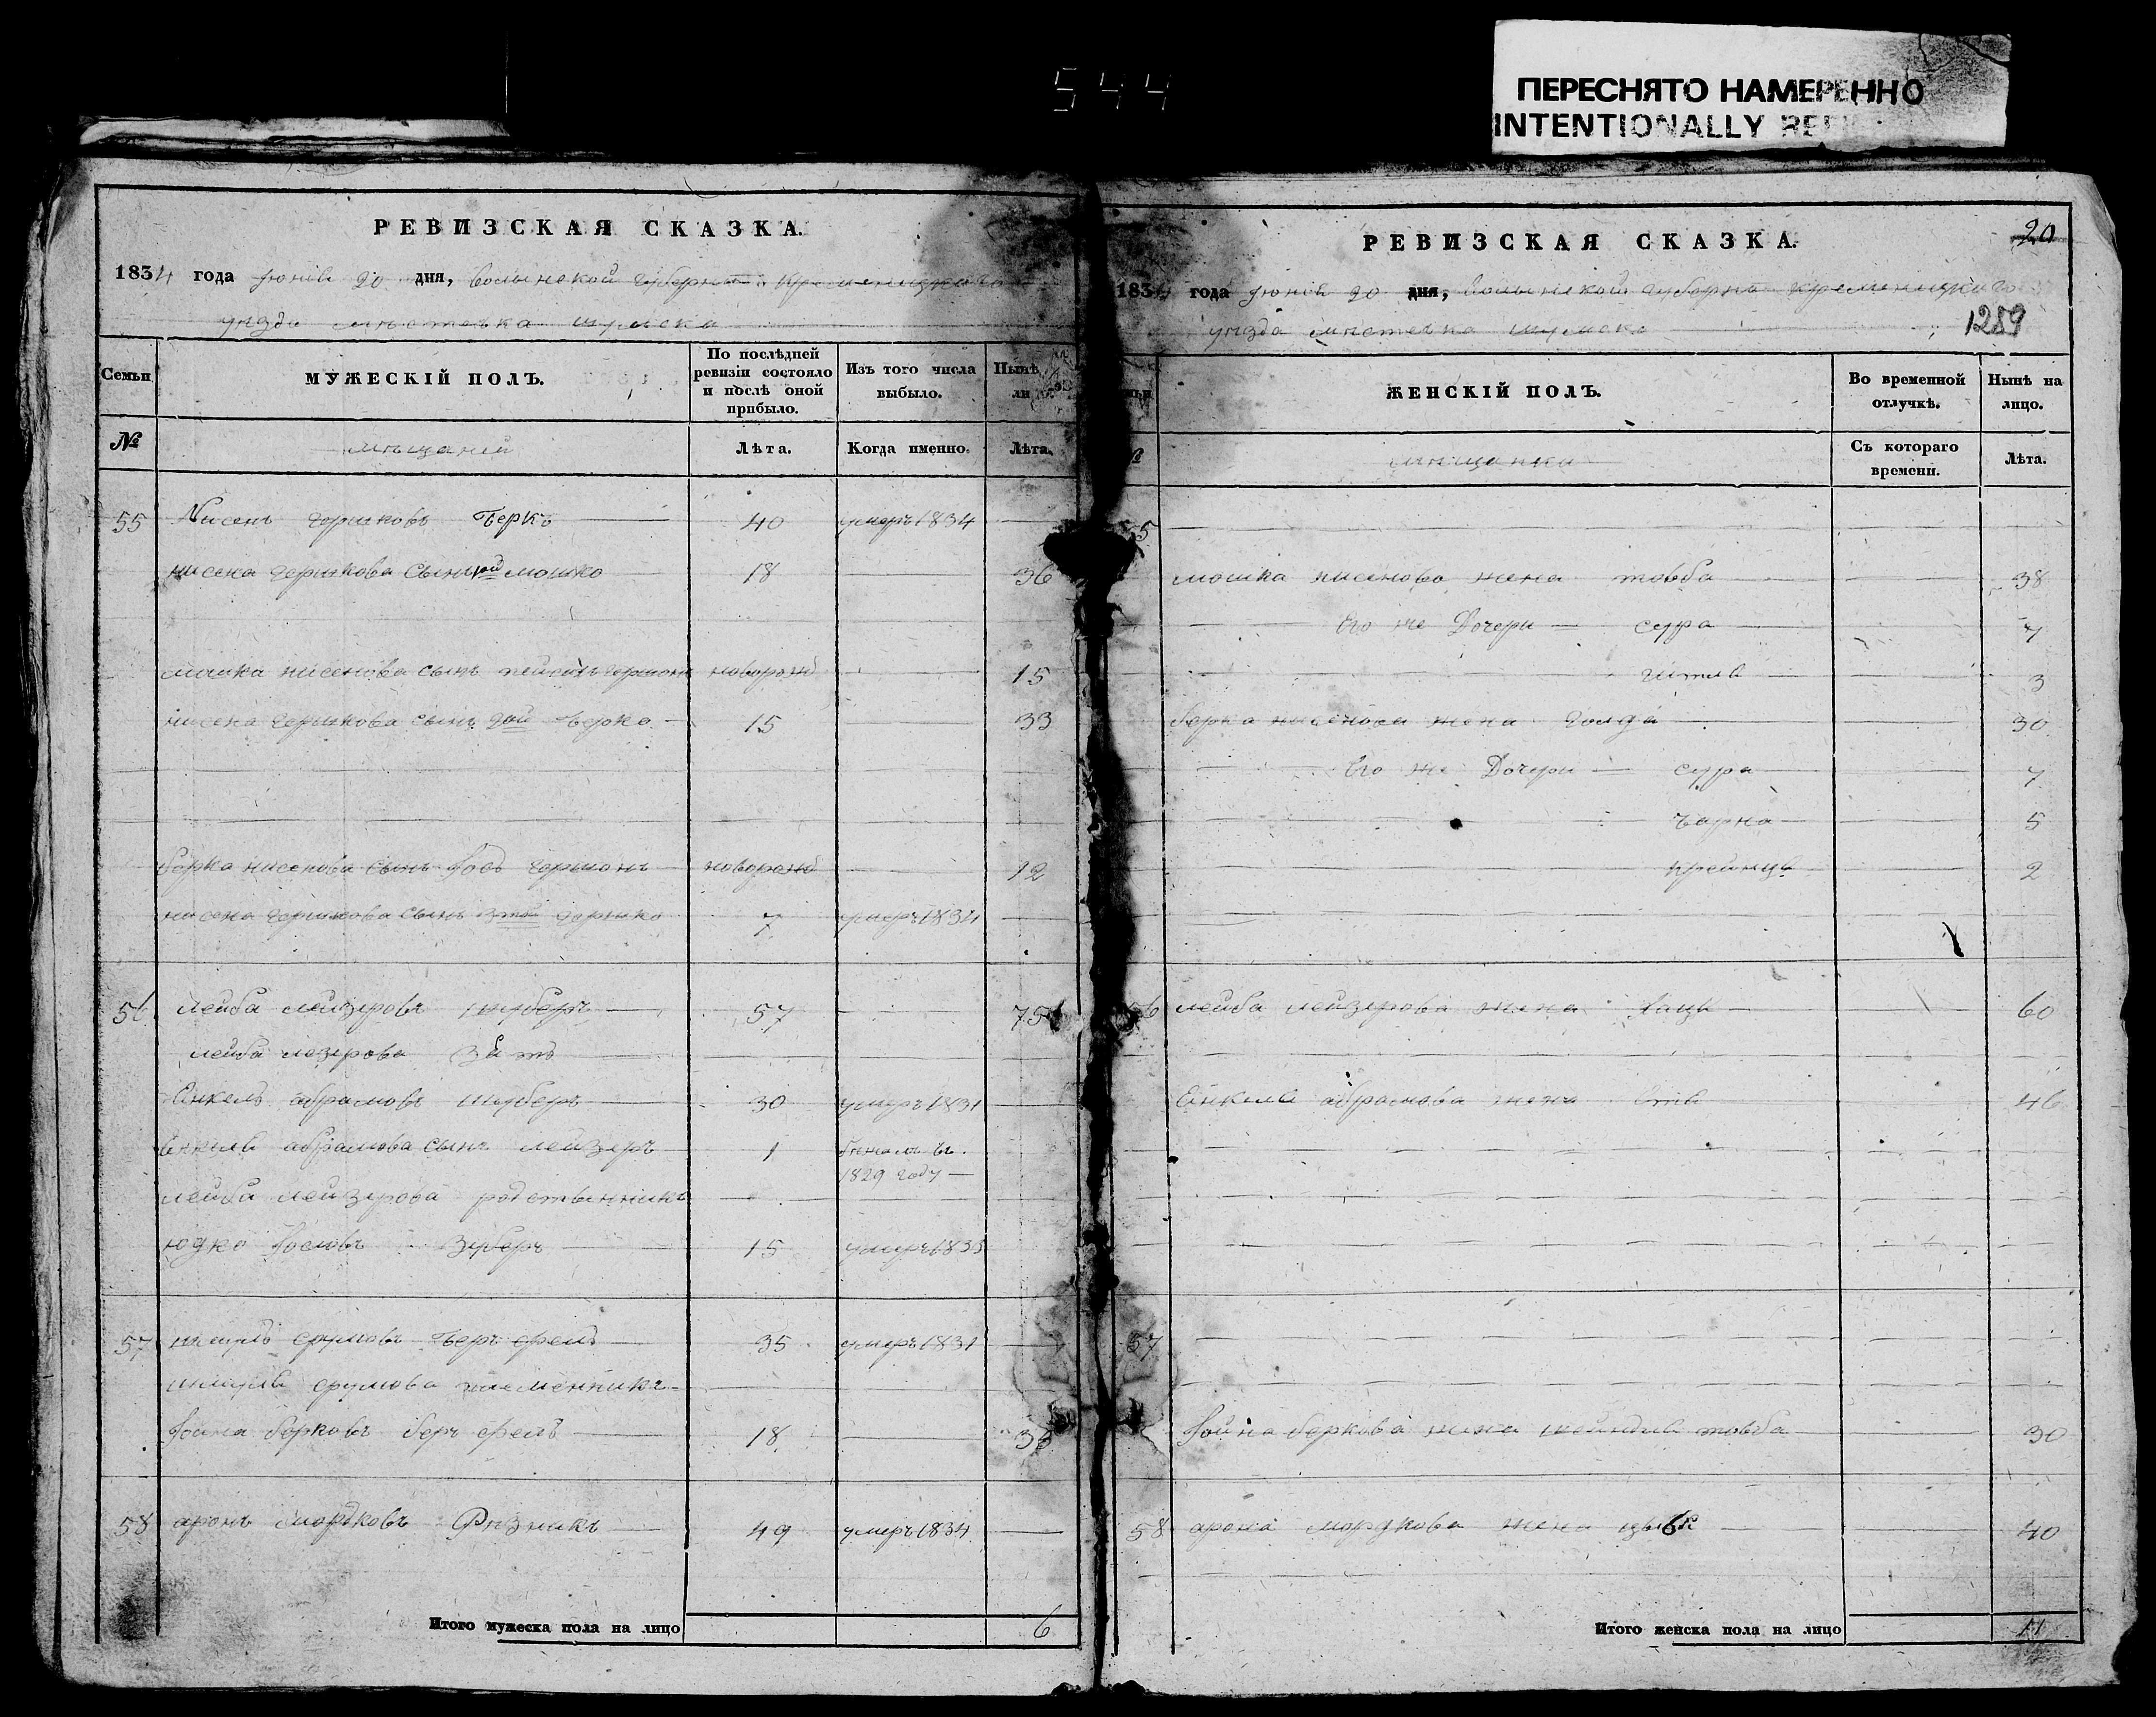 544
ПЕРЕСНЯТО НАМЕРЕННО
INTENTIONALLY
РЕВИЗСКАЯ СКАЗКА.
1834 года Июня 20 дня, Волынской Губернии Кременецкаго
уезда местечка Шумска
Семьи
МУЖЕСКІЙ ПОЛЪ.
По послѣдней ревизіи состояло и послѣ оной прибыло.
Изъ того числа выбыло.
Нынѣ
№
мещане
Лѣта.
Когда именно.
Лѣта.
55 Нисенъ Гершковъ Беркъ 40 умеръ 1834
Нисена Гершкова сынъ 1ой Мошко 18 36
Мошка Нисенова сынъ новорожд 15
Нисена Гершкова сынъ 2ой Берко 15 33
Берка Нисенова сынъ Гершонъ новорожд 12
Нисена Гершкова сынъ 3тий Гершко 7 умеръ 1834
56 Лейба Лейзеровъ 57 75
Лейба Лезерова зять
Янкель Абрамовъ 30 умеръ 1831
Янкеля Абрамова сынъ Лейзеръ 1
1829 году
Лейба Лейзерова родственникъ
Юдко 15
57 Шмуль Срулювъ 35 умеръ 1831
Шмуля Срулова племенникъ
Берковъ 18
58 Аронъ Мордковъ Резникъ 49 умеръ 1834
Итого мужеска пола на лицо 6
РЕВИЗСКАЯ СКАЗКА.
20
1834 года Июня 20 дня, Волынской Губерни Кременецкаго
уезда местечка Шумска
1289
ЖЕНСКІЙ ПОЛЪ.
Во временной отлучкѣ.
Нынѣ на лицо.
мещанки
Съ котораго времени.
Лѣта.
55
Мошка Нисенова жена Товба 38
Его же Дочери Сура 7
Гитля 3
Берка Нисенова жена Голда 30
Его же Дочери Сура 7
Чарна 5
Крейнця 2
56 Лейба Лейзерова жена 60
Янкеля Абрамова жена 46
57
Беркова жена Шейндля Товба 30
58 Арона Мордкова жена 40
Итого женска пола на лицо 11